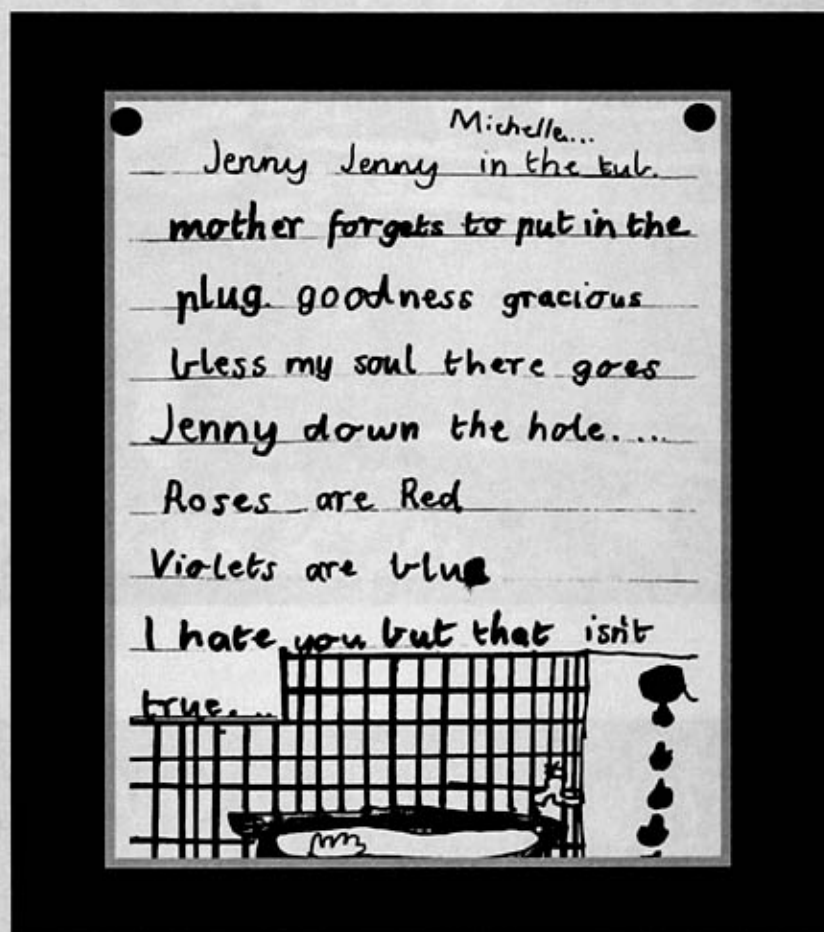 Michelle...
Jenny Jenny in the tub.
mother forgets to put in the
plug. goodness gracious
bless my soul there goes
Jenny down the hole....
Roses are Red
Violets are blue
I hate you but that isn't
true...